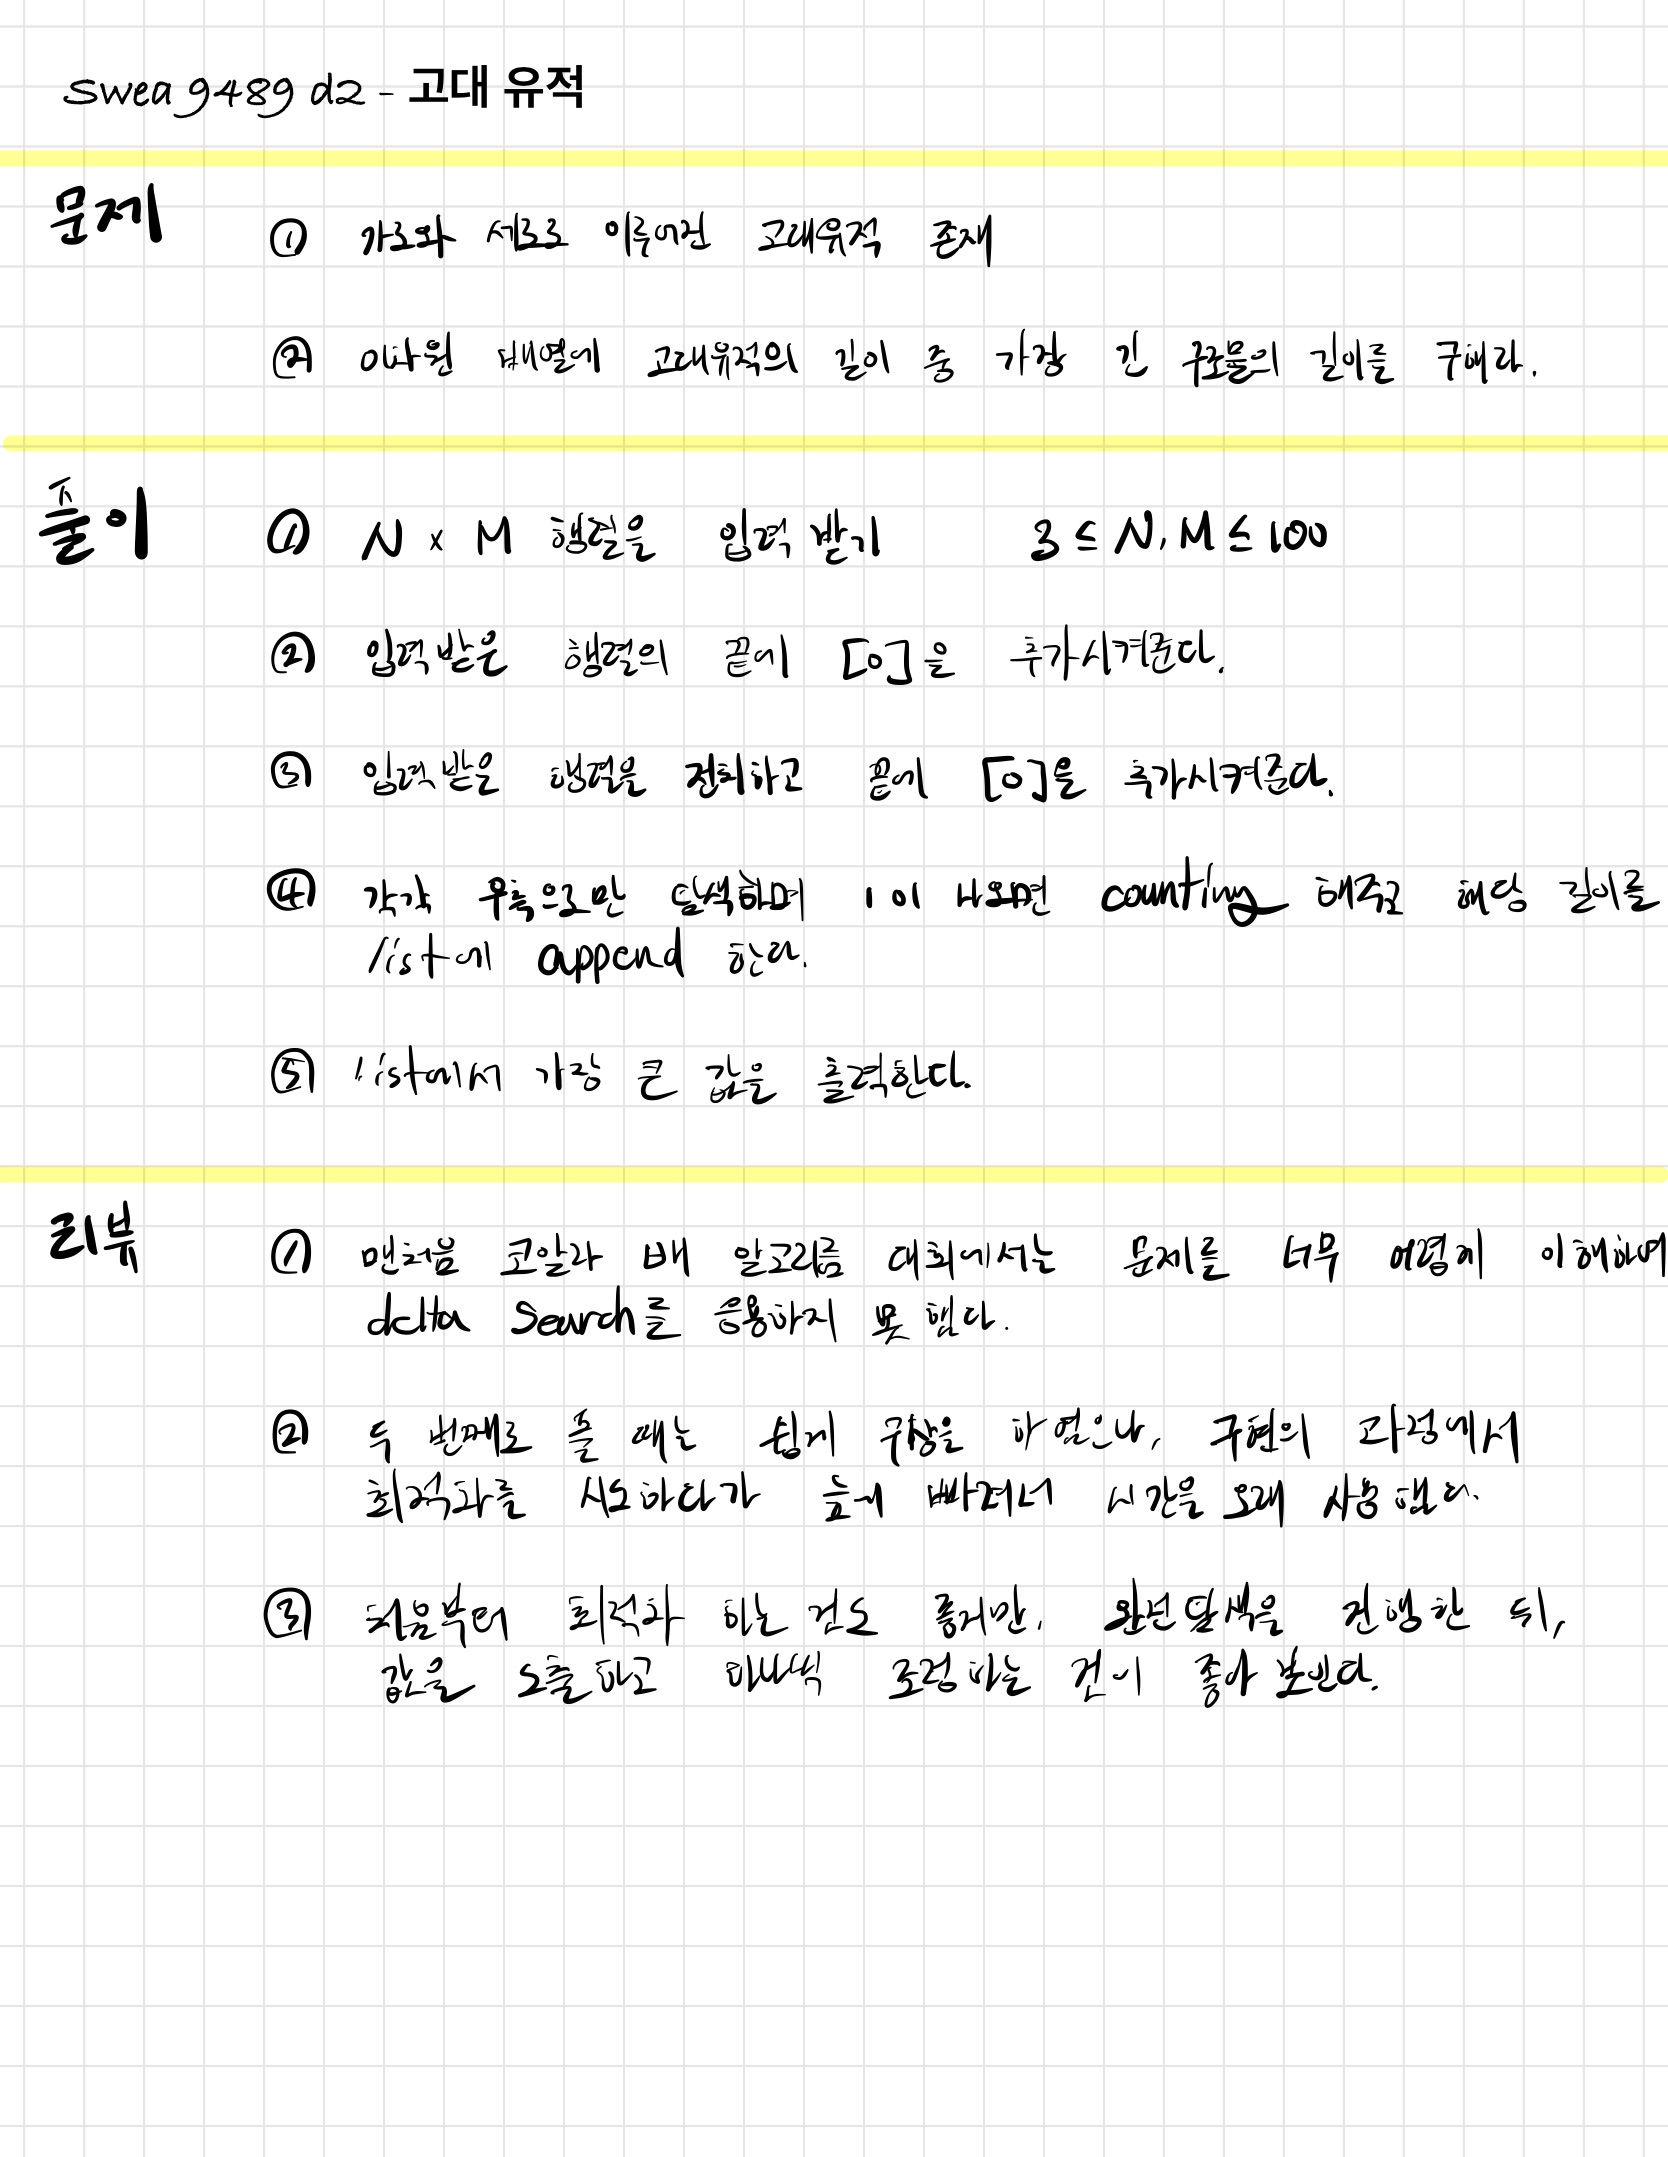 swea 9489 d2 - 고대 유적
문제
① 가로와 세로로 이루어진 고대유적 존재
② 이차원 배열에 고대유적의 길이 중 가장 긴 구조물의 길이를 구해라.
풀이
① N x M 행렬을 입력 받기 3 ≤ N, M ≤ 100
② 입력 받은 행렬의 끝에 [0]을 추가시켜준다.
③ 입력 받은 행렬을 전치하고 끝에 [0]을 추가시켜준다.
④ 각각 우측으로만 탐색하며 1이 나오면 counting 해주고 해당 길이를
list에 append 한다.
⑤ list에서 가장 큰 값을 출력한다.
리뷰
① 맨처음 코알라 배 알고리즘 대회에서는 문제를 너무 어렵게 이해하여
delta search를 응용하지 못 했다.
② 두 번째로 풀 때는 쉽게 구상을 하였으나, 구현의 과정에서
최적화를 시도하다가 늪에 빠져서 시간을 오래 사용했다.
③ 처음부터 최적화 하는 것도 좋지만, 완전탐색을 진행한 뒤,
값을 도출하고 하나씩 조정하는 것이 좋아 보인다.